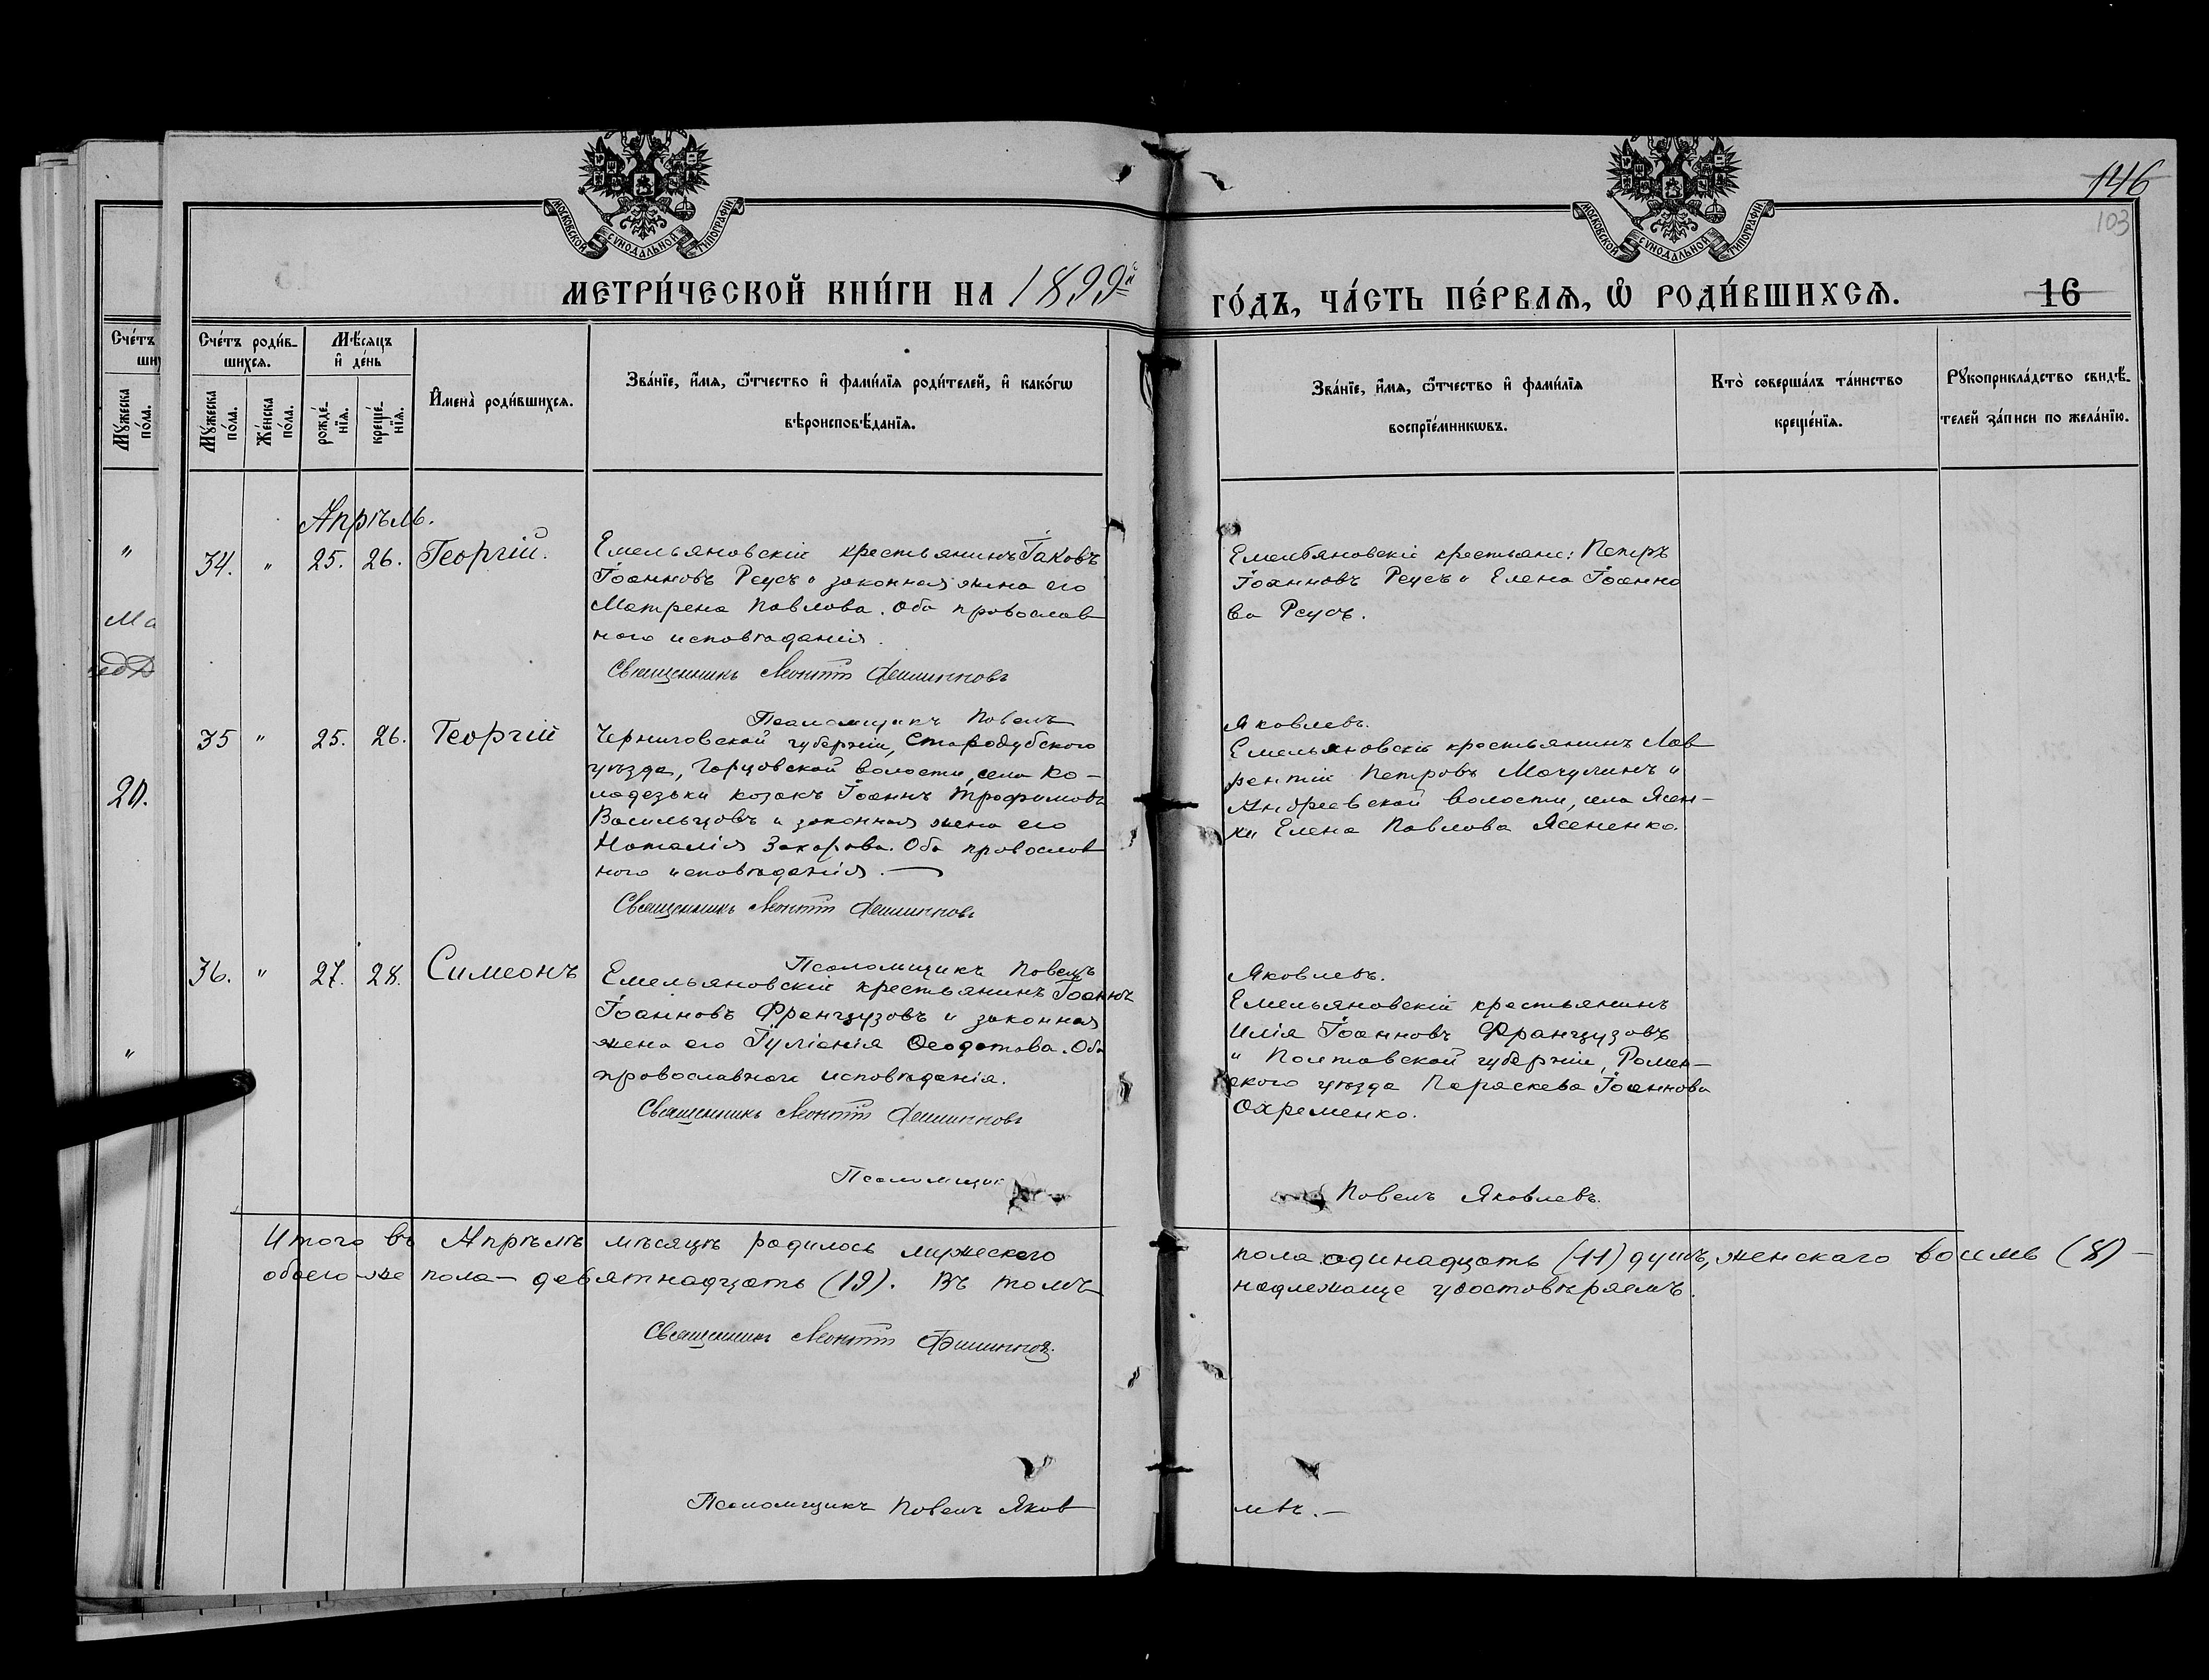 146
103
МОСКОВСКОЙ СѴНОДАЛЬНОЙ ТИПОГРАФІИ
МОСКОВСКОЙ СѴНОДАЛЬНОЙ ТИПОГРАФІИ
МЕТРИ́ЧЕСКОЙ КНИ́ГИ НА 1899й
ГО́ДЪ, ЧА́СТЬ ПЕ́РВАѦ, Ѿ РОДИ́ВШИХСѦ.
16
Сче́тъ роди́в-
шихсѧ.
Мѣ́сѧцъ
и҆ де́нь
Мꙋ́жеска
по́ла.
Же́нска
по́ла.
рожде́-
нїѧ.
креще́-
нїѧ.
И҆мена̀ роди́вшихсѧ.
Зва́нїе, и҆́мѧ, ѻ҆́тчество и҆ фамѝлїѧ роди́телей, и҆ како́гѡ
вѣроисповѣ́данїѧ.
Зва́нїе, и҆́мѧ, ѻ҆́тчество и҆ фами́лїѧ
воспрїе́мникѡвъ.
Кто̀ соверша́лъ та́инство
креще́нїѧ.
Рꙋкоприкла́дство свидѣ́-
телей за́писи по жела́нїю.
Апрѣль.
34. " 25. 26. Георгій.
Емельяновскій крестьянинъ Іаковъ
Іоанновъ Реусъ и законная жена его
Матрена Павлова. Оба православ
наго исповѣданія.
Священникъ Леонтій
Емельяновскіе крестьяне: Петръ
Іоанновъ Реусъ и Елена Іоанно
ва Реусъ.
Псаломщикъ Павелъ
Яковлевъ.
35 " 25. 26. Георгій
Черниговской губерніи, Стародубского
уѣзда, волости, села Ко-
ладезьки козакъ Іоаннъ Трофимовъ
Васильцовъ и законная жена его
Наталія Захарова. Оба православ
наго исповѣданія. —
Священникъ Леонтій
Емельяновскій крестьянинъ Лав
рентій Петровъ Мачулинъ и
Андреевской волости, села Ясен-
ки Елена Павлова Ясененко.
Псаломщикъ Павелъ
Яковлевъ.
36. " 27. 28. Симеонъ
Емельяновскій крестьянинъ Іоаннъ
Іоанновъ Французовъ и законная
жена его Іуліанія Ѳеодотова. Оба
православнаго исповѣданія.
Священникъ Леонтій
Емельяновскій крестьянинъ
Илія Іоанновъ Французовъ
и Полтавской губерніи, Ромен-
скаго уѣзда Параскева Іоаннова
Охременко.
Псаломщик
Павелъ Яковлевъ.
Итого въ Апрѣлѣ мѣсяцѣ родилось мужескаго
пола одинадцать (11) душъ, женскаго восимь (8) —
обоего-же пола — девятнадцать (19). Въ томъ
надлежаще удостовѣряемъ.
Священникъ Леонтій
Псаломщикъ Павелъ Яков
левъ. —
Сче́тъ
ши
Мꙋ́жеска
по́ла.
"
Ма
20.
"